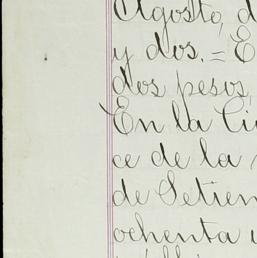 Agosto, d
y dos. = E
dos pesos,
En la Ciu
ce de la
de Setiem
ochenta y